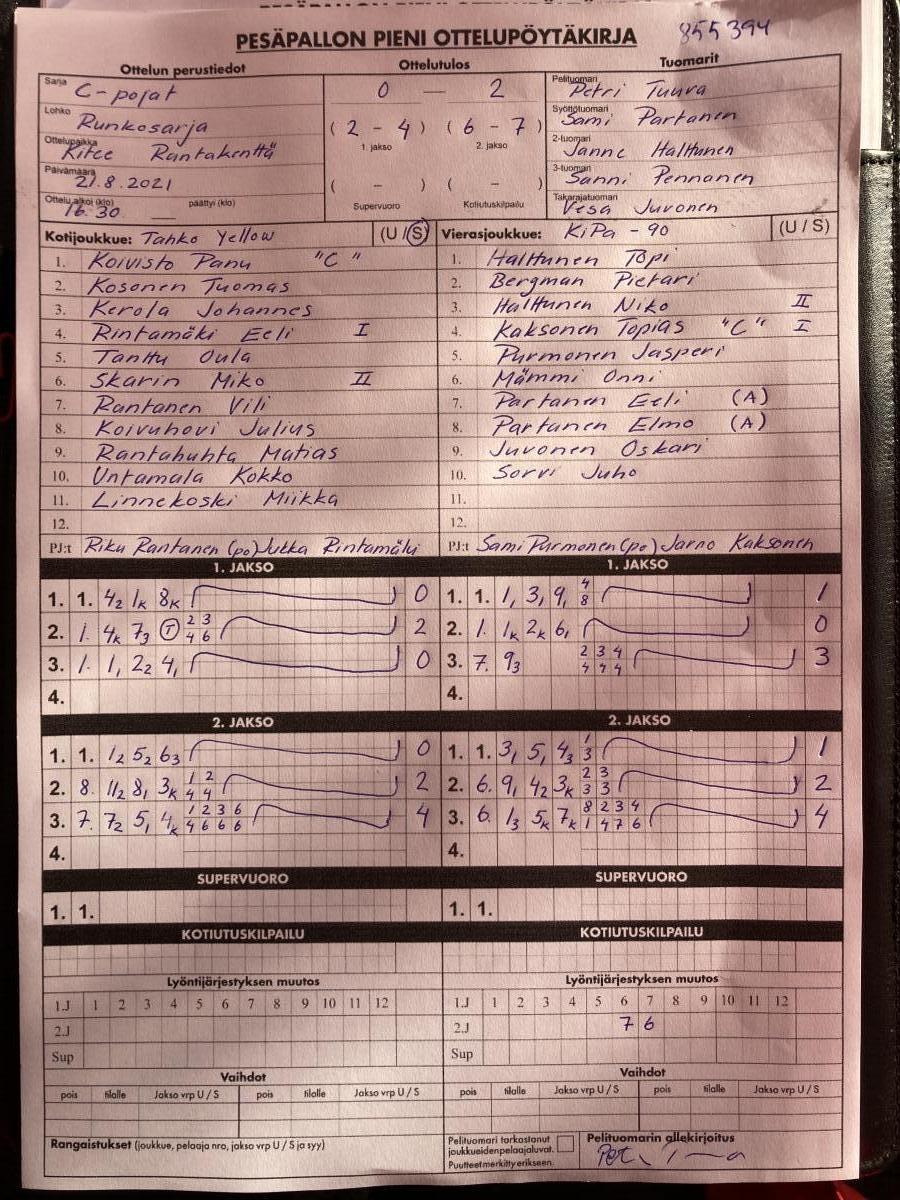 PESÄPALLON PIENI OTTELUPÖYTÄKIRJA 855394
Ottelun perustiedot Ottelutulos Tuomarit
Sarja C-pojat 0 — 2 Pelituomari Petri Tuura
Lohko Runkosarja (2 - 4) (6 - 7) Syöttötuomari Sami Partanen
1. jakso 2. jakso
Ottelupaikka Kitee Rantakenttä 2-tuomari Janne Halttunen
Päivämäärä 21.8.2021 ( - ) ( - ) 3-tuomari Sanni Pennanen
Ottelu alkoi (klo) 16.30 päättyi (klo) Supervuoro Kotiutuskilpailu Takarajatuomari Vesa Juvonen
Kotijoukkue: Tahko Yellow (U / S) Vierasjoukkue: KiPa - 90 (U / S)
1. Koivisto Panu "C" 1. Halttunen Topi
2. Kosonen Tuomas 2. Bergman Pietari
3. Kerola Johannes 3. Halttunen Niko II
4. Rintamäki Eeli I 4. Kaksonen Topias "C" I
5. Tanttu Oula 5. Purmonen Jasperi
6. Skarin Miko II 6. Mämmi Onni
7. Rantanen Vili 7. Partanen Eeli (A)
8. Koivuhovi Julius 8. Partanen Elmo (A)
9. Rantahuhta Matias 9. Juvonen Oskari
10. Untamala Kokko 10. Sorvi Juho
11. Linnekoski Miikka 11.
12. 12.
PJ:t Riku Rantanen (po) Jukka Rintamäki PJ:t Sami Purmonen (po) Jarno Kaksonen
1. JAKSO 1. JAKSO
1. 1. 42 1k 8k 0 1. 1. 1, 3, 9, 4 8 1
2. 1. 4k 73 T 2 3 4 6 2 2. 1. 1k 2k 6, 0
3. 1. 1, 22 4, 0 3. 7. 93 2 3 4 4 4 4 3
4. 4.
2. JAKSO 2. JAKSO
1. 1. 12 52 63 0 1. 1. 3, 5, 43 1 3 1
2. 8. 112 8, 3k 1 2 4 4 2 2. 6. 9, 42 3k 2 3 3 3 2
3. 7. 72 5, 4k 1 2 3 6 4 6 6 6 4 3. 6. 13 5k 7k 8 2 3 4 1 4 7 6 4
4. 4.
SUPERVUORO SUPERVUORO
1. 1. 1. 1.
KOTIUTUSKILPAILU KOTIUTUSKILPAILU
Lyöntijärjestyksen muutos Lyöntijärjestyksen muutos
1.J 1 2 3 4 5 6 7 8 9 10 11 12 1.J 1 2 3 4 5 6 7 8 9 10 11 12
2.J 2.J 7 6
Sup Sup
Vaihdot Vaihdot
pois tilalle Jakso vrp U / S pois tilalle Jakso vrp U / S pois tilalle Jakso vrp U / S pois tilalle Jakso vrp U / S
Rangaistukset (joukkue, pelaaja nro, jakso vrp U / S ja syy) Pelituomari tarkastanut Pelituomarin allekirjoitus
joukkueiden pelaajaluvat.
Puutteet merkitty erikseen.